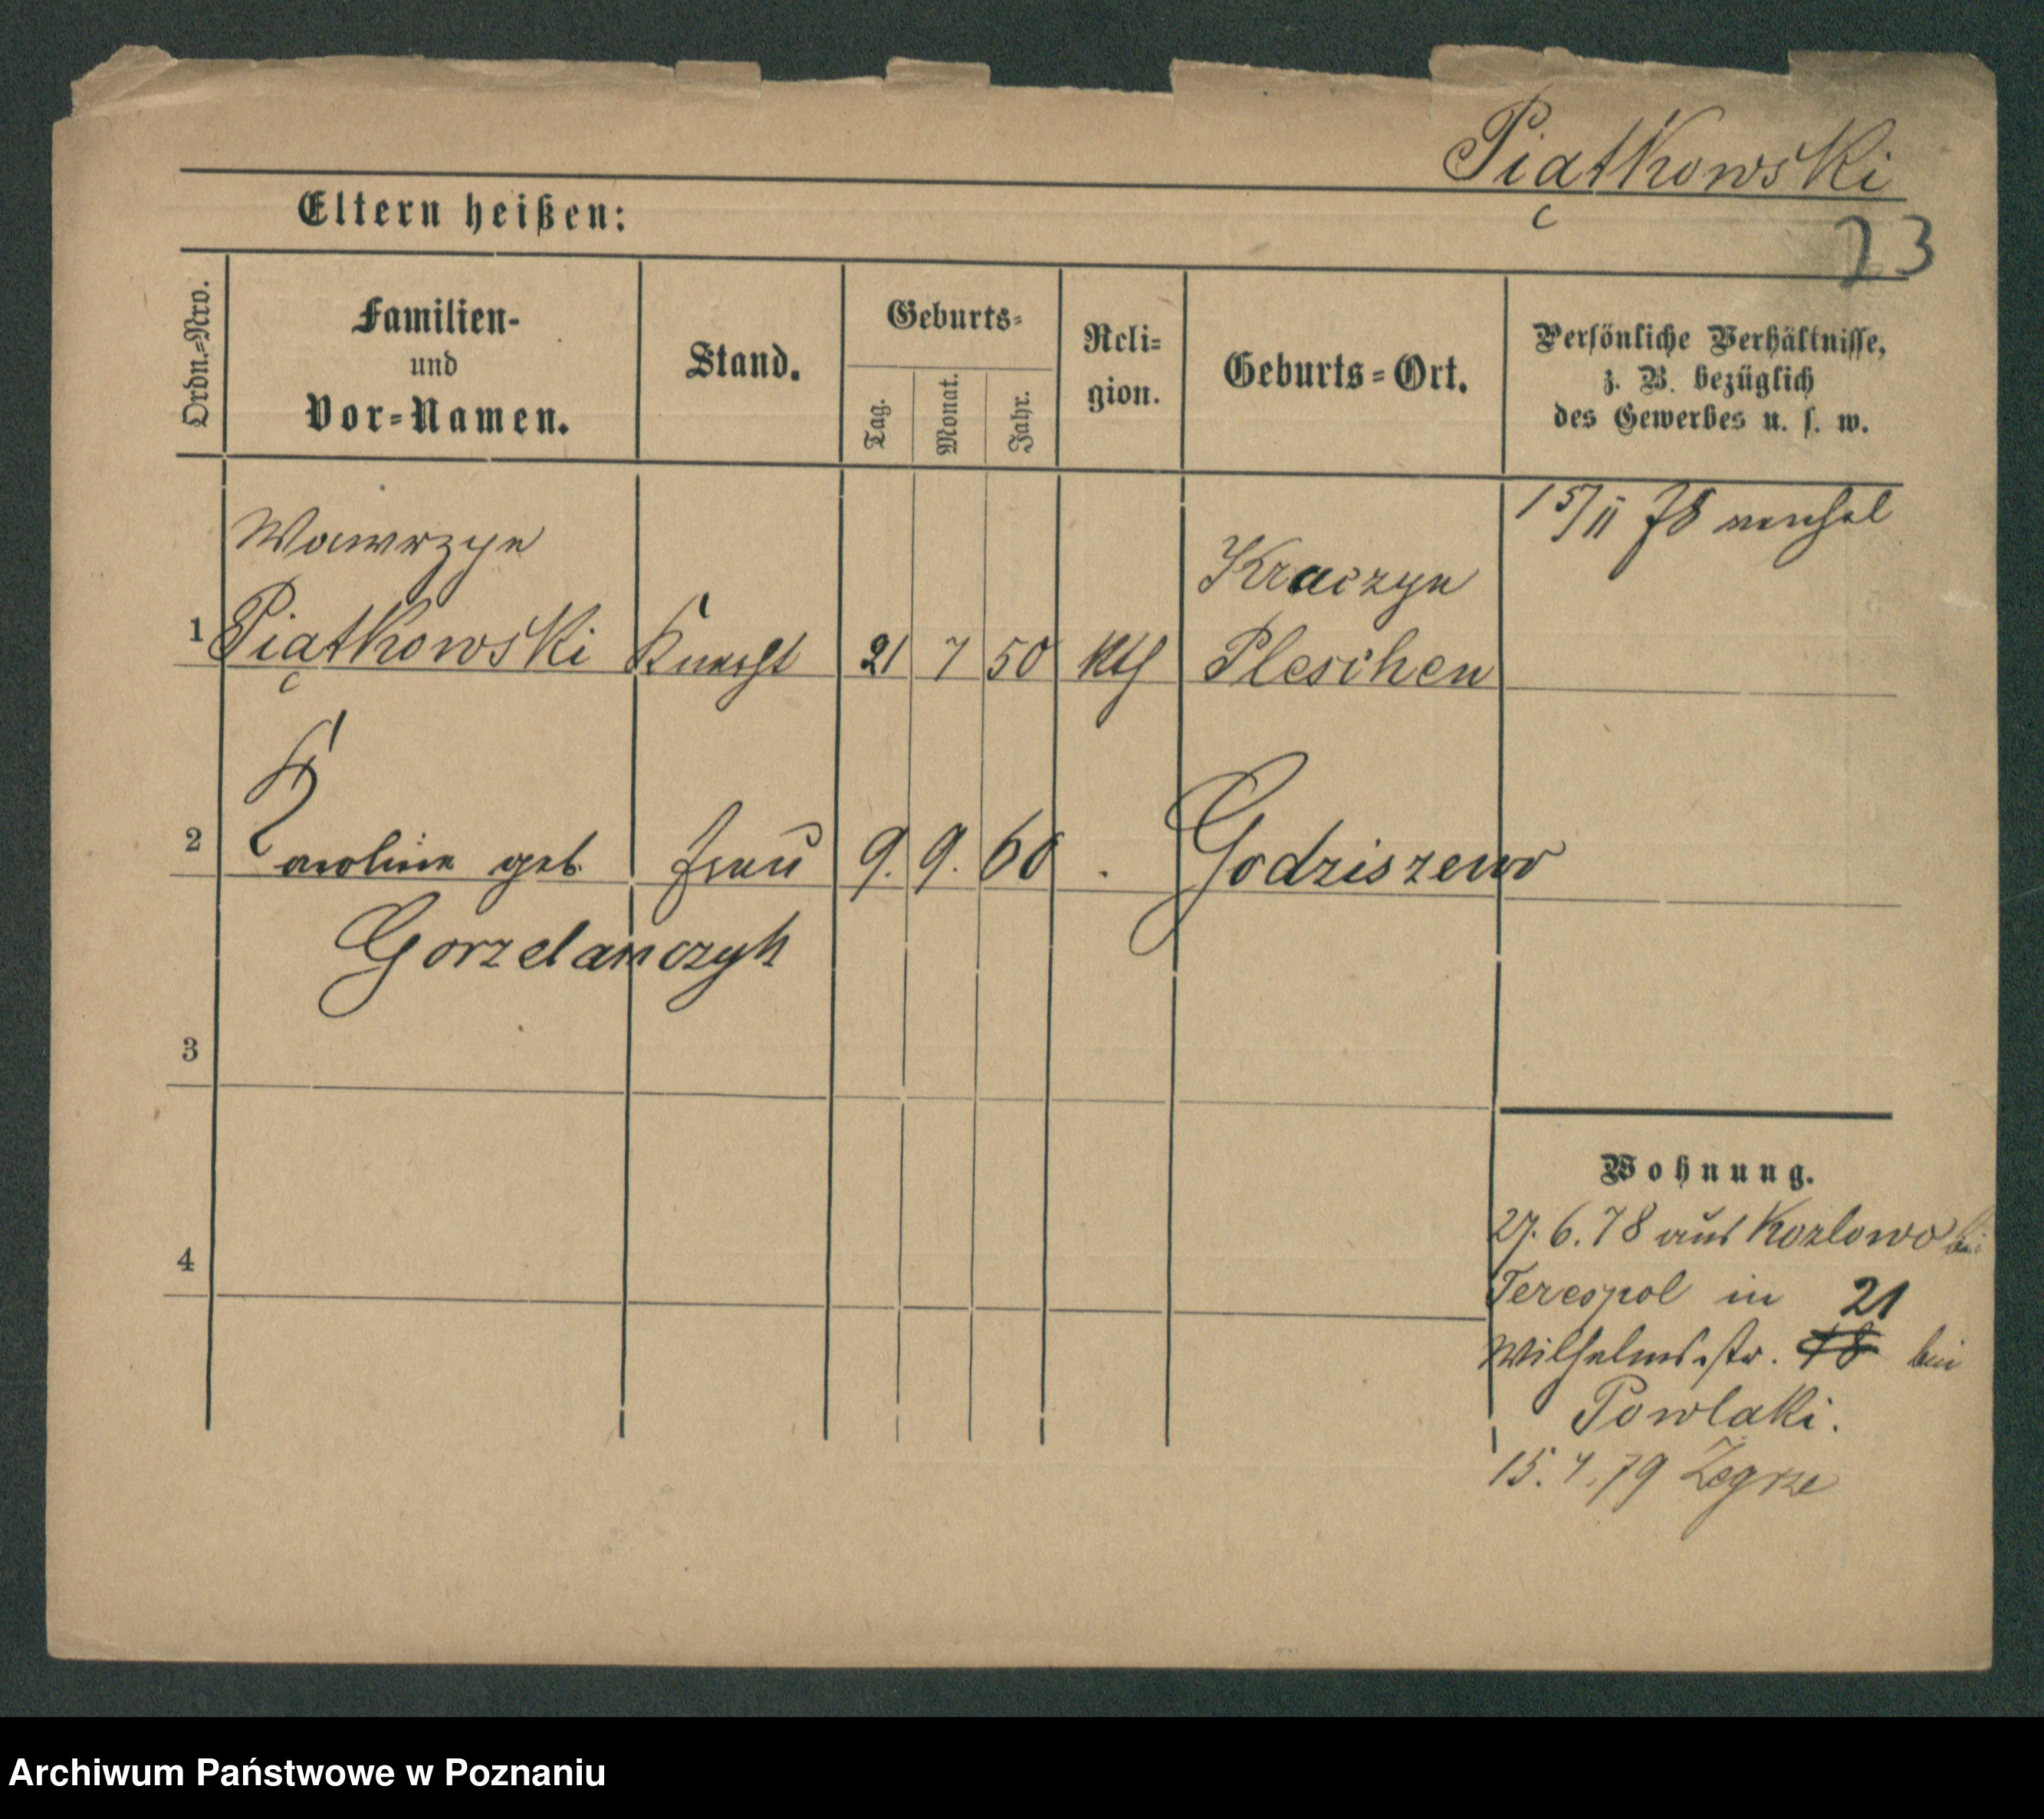 Piątkowski
Eltern heißen:
73
Ordn.=Nro.
Familien-
und
Vor=Namen.
Stand.
Geburts=
Tag.
Monat.
Jahr.
Reli=
gion.
Geburts=Ort.
Persönliche Verhältnisse,
z. B. bezüglich
des Gewerbes u. s. w.
15/11 78
Wawrzyn
Piątkowski
1
Knecht
21 7 50
Kth
Kraczyn
Pleschen
2
Karoline geb.
Gorzelanczyk
Frau
9. 9. 60
Godziszewo
3
4
Wohnung.
27. 6. 78 aus Kozlowo bei
Terespol in 21
Wilhelmsstr. 18 bei
Powlaki.
15. 4. 79 Zegrze
Archiwum Państwowe w Poznaniu